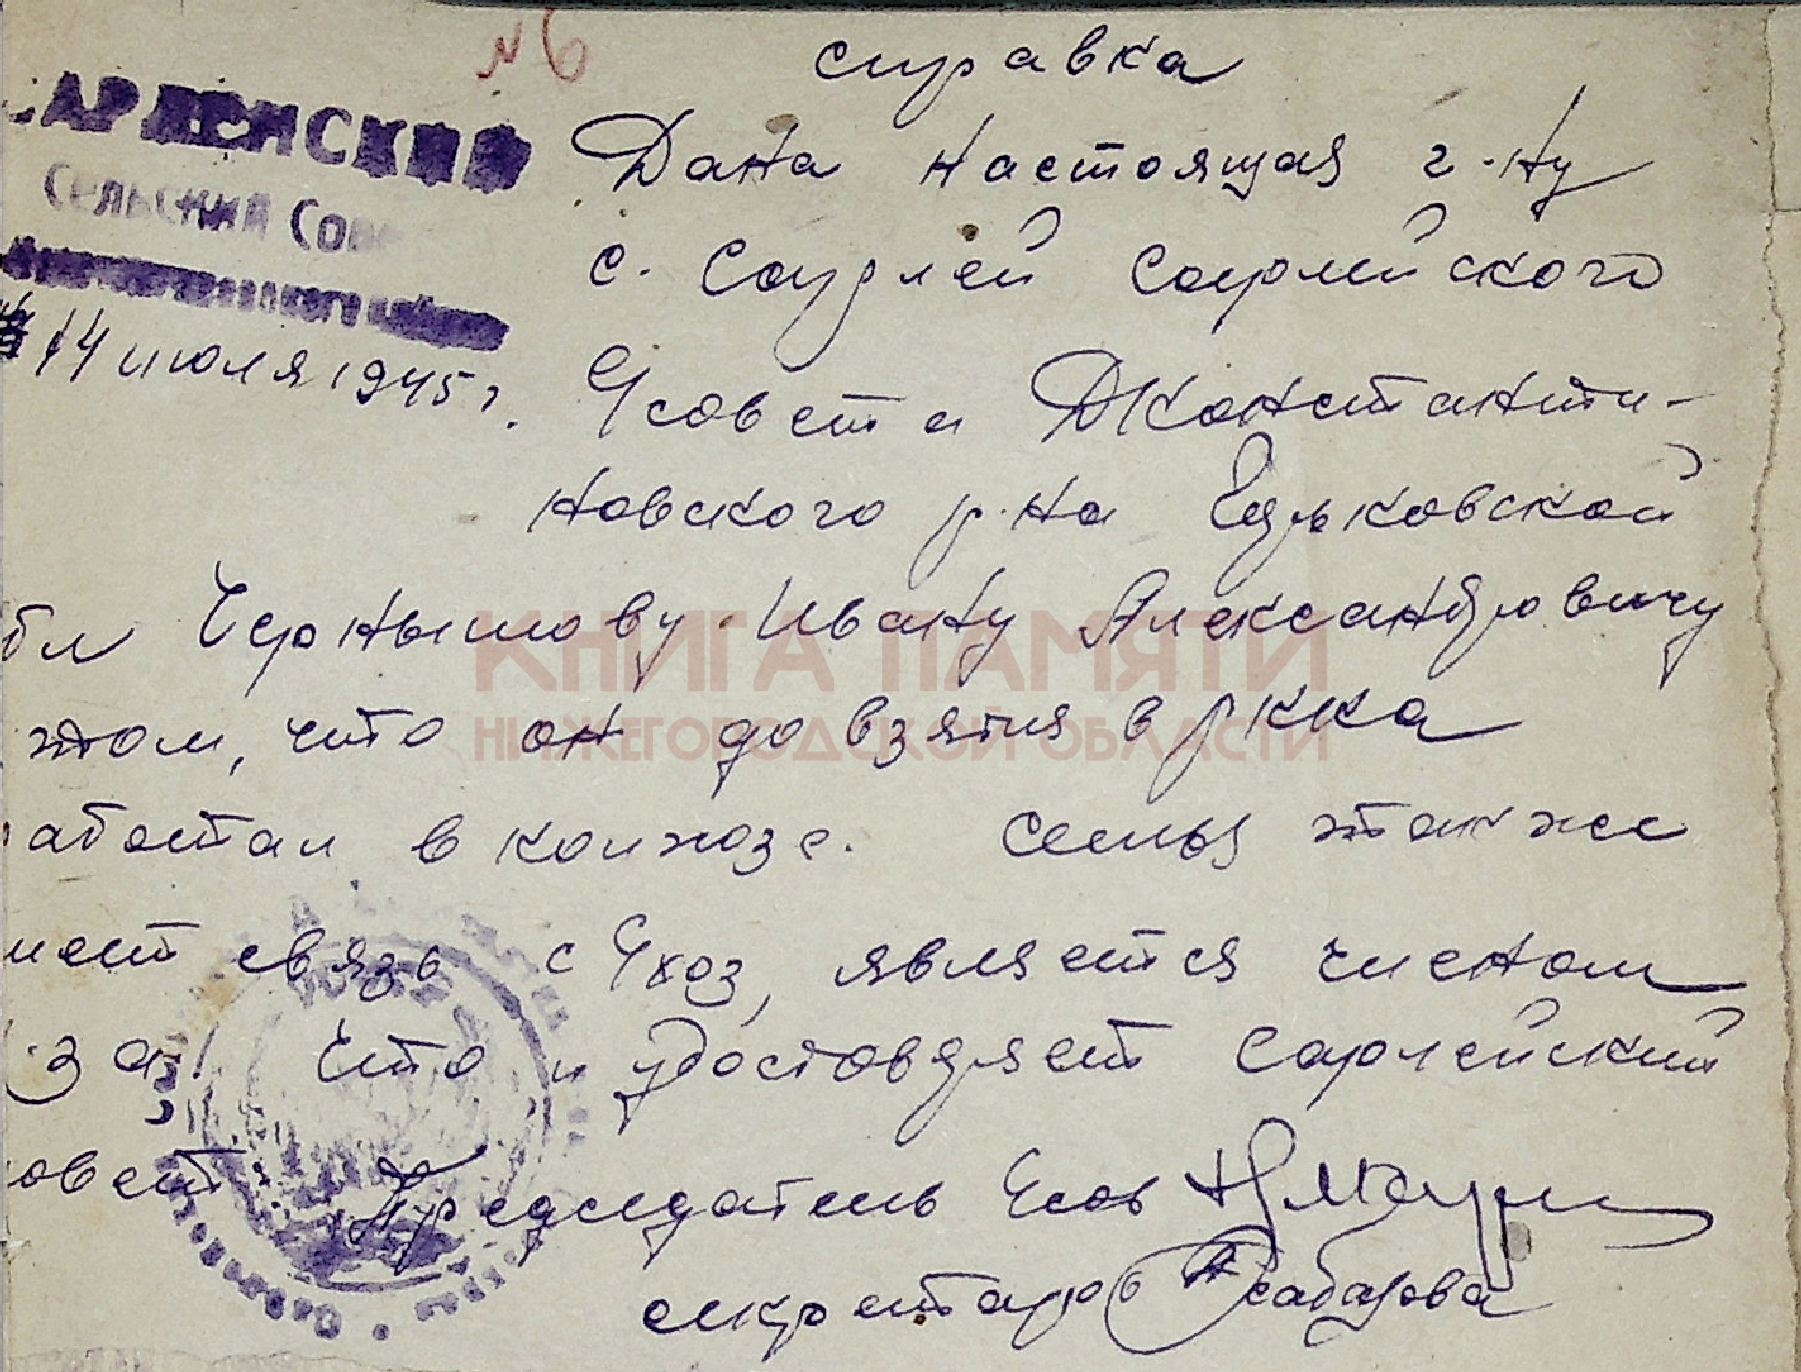 №6
справка
САРЛЕЙСКИЙ
СЕЛЬСКИЙ СОВЕ
14 июля 1945 г.
Дана настоящая г-ну
с. Сарлей Сарлейского
с/совета Дконстанти-
новского р-на Горьковской
обл Чернышову Ивану Александровичу
в том, что он до взятия в РККА
работал в колхозе. Семья также
имеет связь с К/хоз, является членом
к/за. Что и удостоверяет Сарлейский
совет
Председатель с/сов
секретарь
КНИГА ПАМЯТИ
НИЖЕГОРОДСКОЙ ОБЛАСТИ